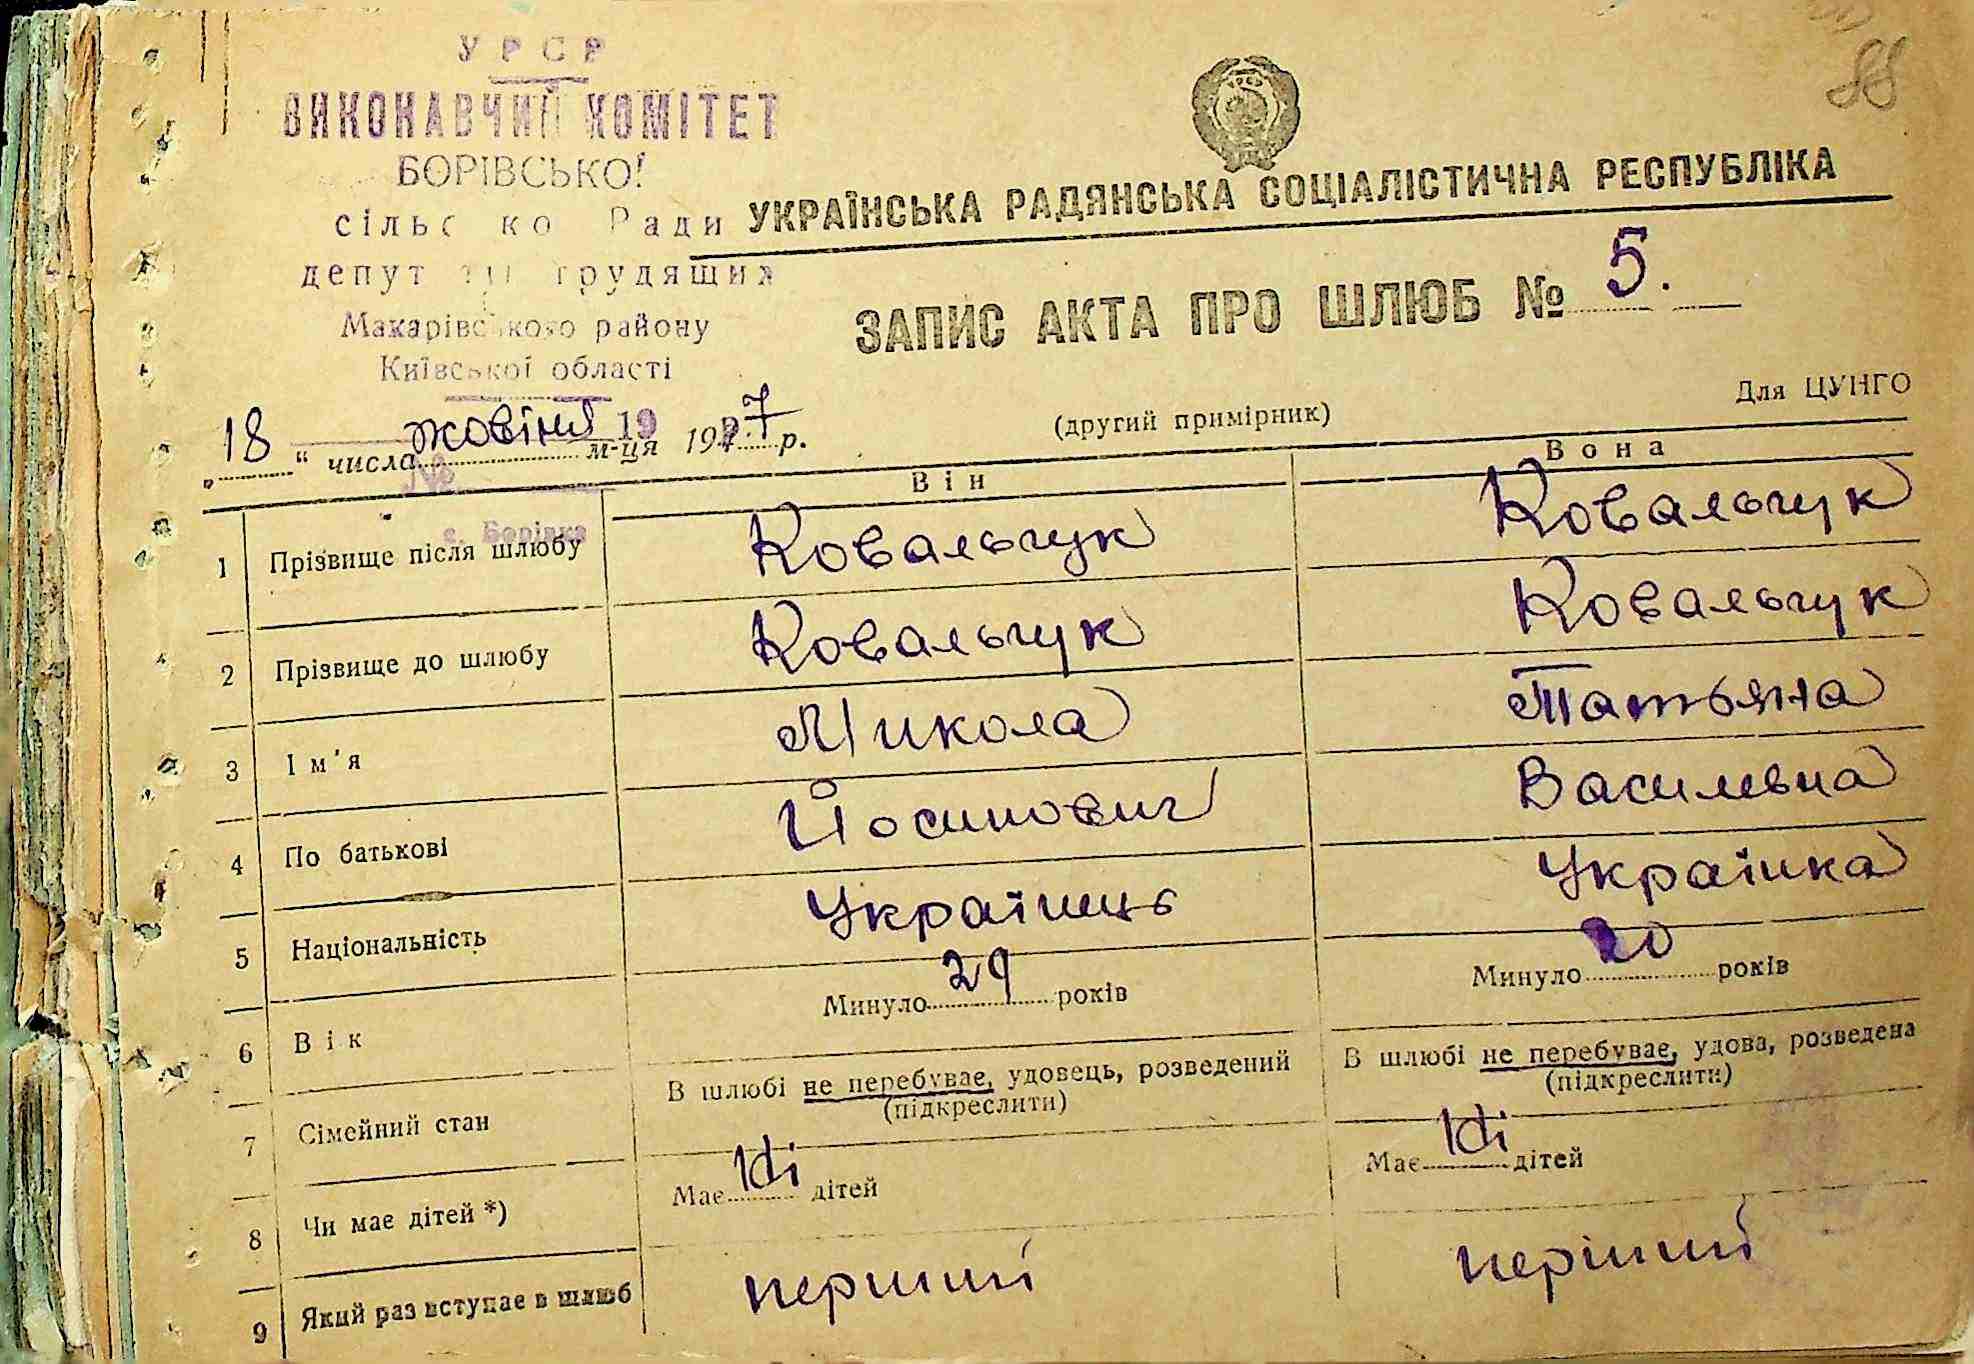 УРСР
ВИКОНАВЧИЙ КОМІТЕТ
БОРІВСЬКО
сільс ко Ради
депут трудящих
Макарівського району
Київської області
88
УКРАЇНСЬКА РАДЯНСЬКА СОЦІАЛІСТИЧНА РЕСПУБЛІКА
ЗАПИС АКТА ПРО ШЛЮБ № 5.
Для ЦУНГО
(другий примірник)
„18“ числа жовтня 19 м-ця 19 7 р.
№
с. Борівка
Він Вона
1 Прізвище після шлюбу Ковальчук Ковальчук
2 Прізвище до шлюбу Ковальчук Ковальчук
3 Ім'я Микола Татьяна
4 По батькові Йосипович Василевна
5 Національність Українець Українка
6 Вік Минуло 29 років Минуло 20 років
7 Сімейний стан В шлюбі не перебуває, удовець, розведений (підкреслити) В шлюбі не перебуває, удова, розведена (підкреслити)
8 Чи має дітей *) Має дітей Має дітей
9 Який раз вступає в шлюб перший перший